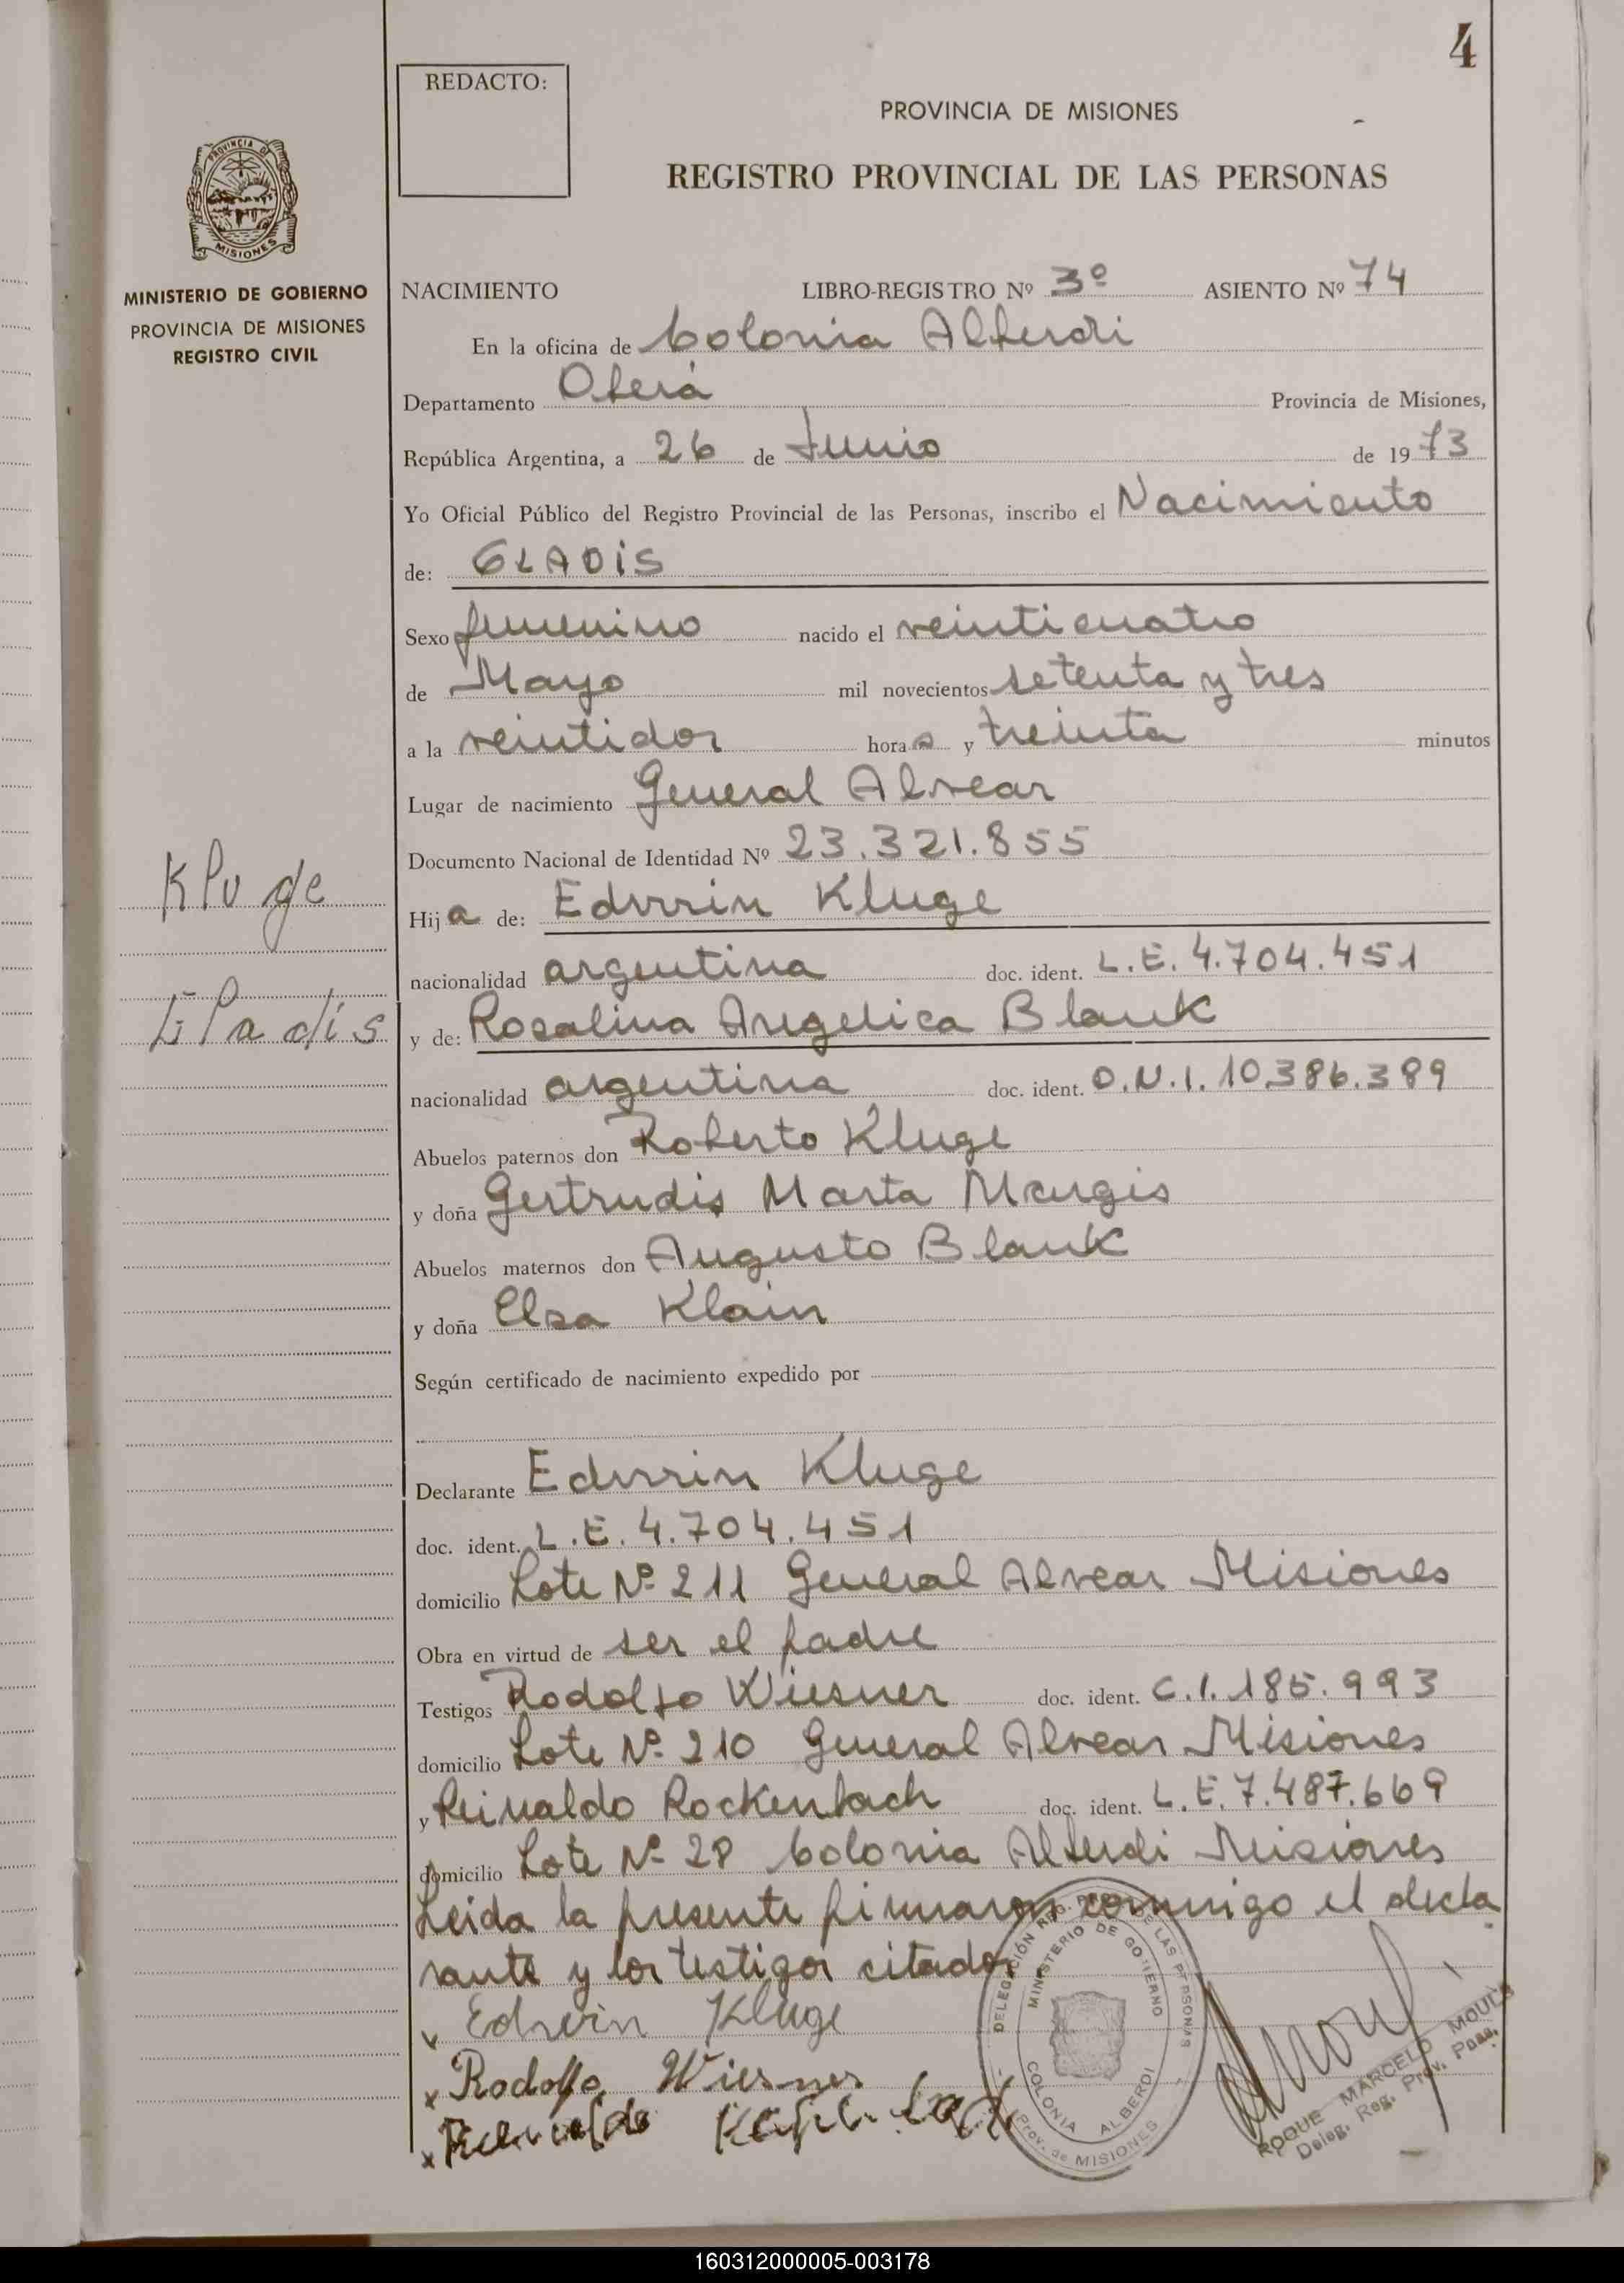 4
REDACTO:
PROVINCIA DE MISIONES
REGISTRO PROVINCIAL DE LAS PERSONAS
PROVINCIA DE
MISIONES
MINISTERIO DE GOBIERNO
PROVINCIA DE MISIONES
REGISTRO CIVIL
NACIMIENTO LIBRO-REGISTRO Nº 3º ASIENTO Nº 74
En la oficina de Colonia Alberdi
Departamento Oberá Provincia de Misiones,
República Argentina, a 26 de Junio de 1973
Yo Oficial Público del Registro Provincial de las Personas, inscribo el Nacimiento
de: GLADIS
Sexo femenino nacido el veinticuatro
de Mayo mil novecientos setenta y tres
a la veintidos horas y treinta minutos
Lugar de nacimiento General Alvear
Documento Nacional de Identidad Nº 23.321.855
Kluge
Hija de: Edwin Kluge
nacionalidad argentina doc. ident. L.E. 4.704.451
Gladis
y de: Rosalina Angelica Blank
nacionalidad argentina doc. ident. D.N.I. 10.386.389
Abuelos paternos don Roberto Kluge
y doña Gertrudis Marta Margis
Abuelos maternos don Augusto Blank
y doña Elsa Klain
Según certificado de nacimiento expedido por
Declarante Edwin Kluge
doc. ident. L.E. 4.704.451
domicilio Lote Nº 211 General Alvear Misiones
Obra en virtud de ser el padre
Testigos Rodolfo Wiesner doc. ident. C.I. 185.993
domicilio Lote Nº 210 General Alvear Misiones
y Reinaldo Rockenbach doc. ident. L.E. 7.487.669
domicilio Lote Nº 28 Colonia Alberdi Misiones
Leida la presente firmaron conmigo el decla
rante y los testigos citados
Edwin Kluge
Rodolfo Wiesner
DELEGACIÓN REG. PROV. DE LAS PERSONAS
MINISTERIO DE GOBIERNO
COLONIA ALBERDI
Prov. de MISIONES
ROQUE MARCELO MOULS
Deleg. Reg. Prov. Pnas.
160312000005-003178